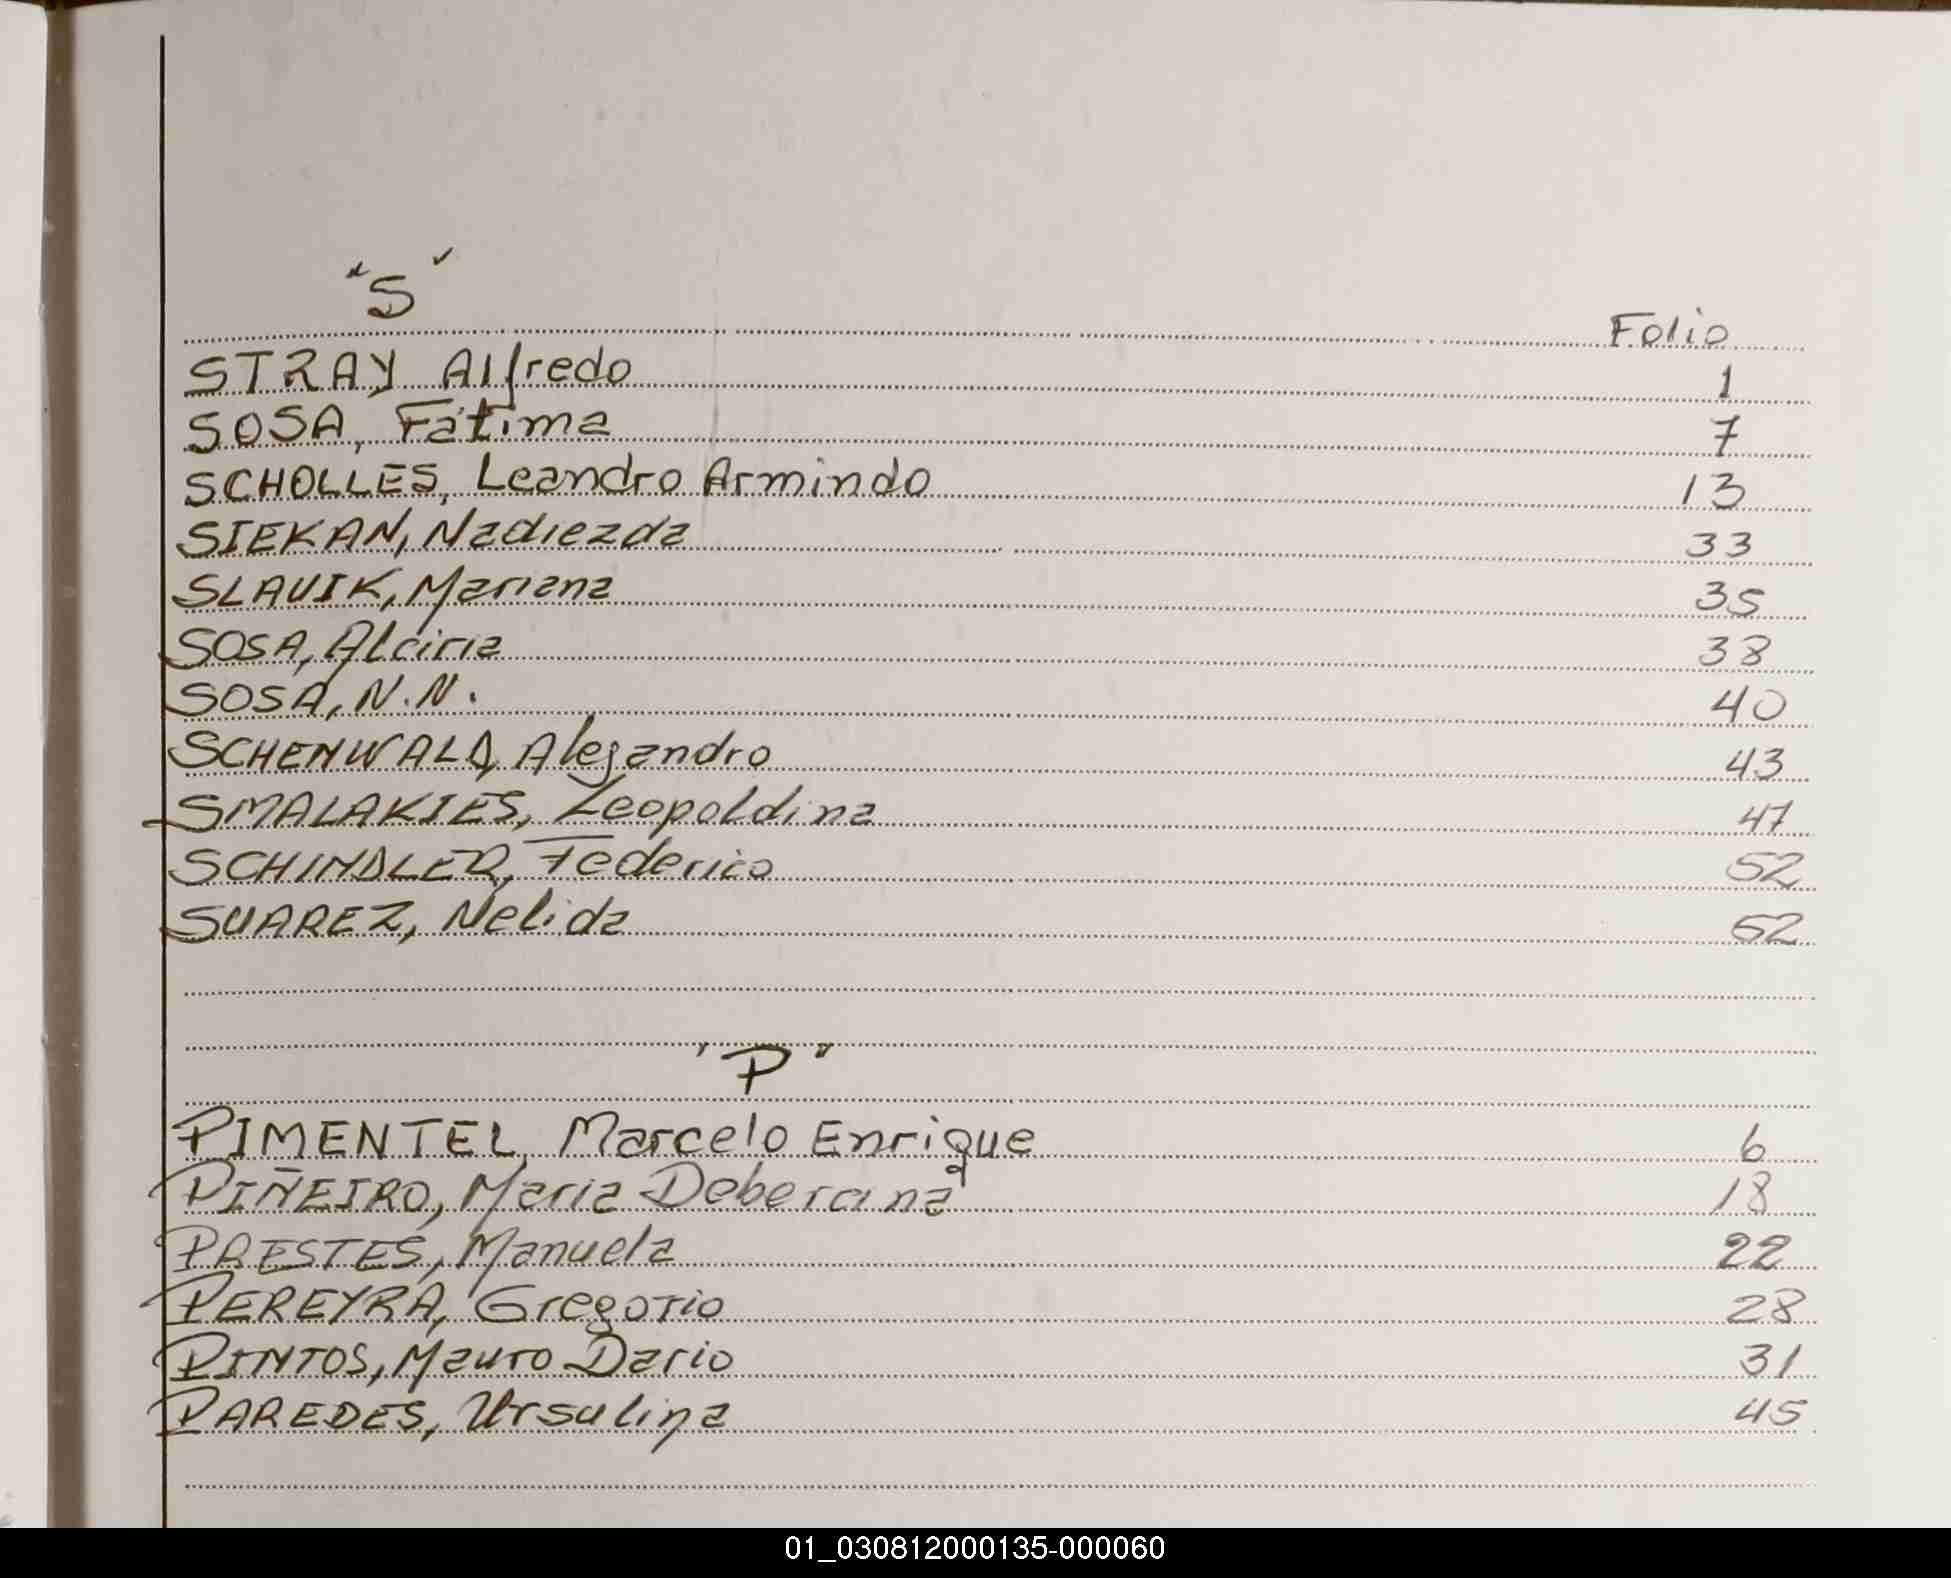 "S"
Folio
STRAY Alfredo 1
SOSA, Fátima 7
SCHOLLES, Leandro Armindo 13
SIEKAN, Nadiezda 33
SLAVIK, Mariana 35
SOSA, Alciria 38
SOSA, N.N. 40
SCHENWALD, Alejandro 43
SMALAKIES, Leopoldina 47
SCHINDLER, Federico 52
SUAREZ, Nelida 52
"P"
PIMENTEL, Marcelo Enrique 6
PIÑEIRO, Maria Deberana 18
PRESTES, Manuela 22
PEREYRA, Gregorio 28
PINTOS, Mauro Dario 31
PAREDES, Ursulina 45
01_030812000135-000060